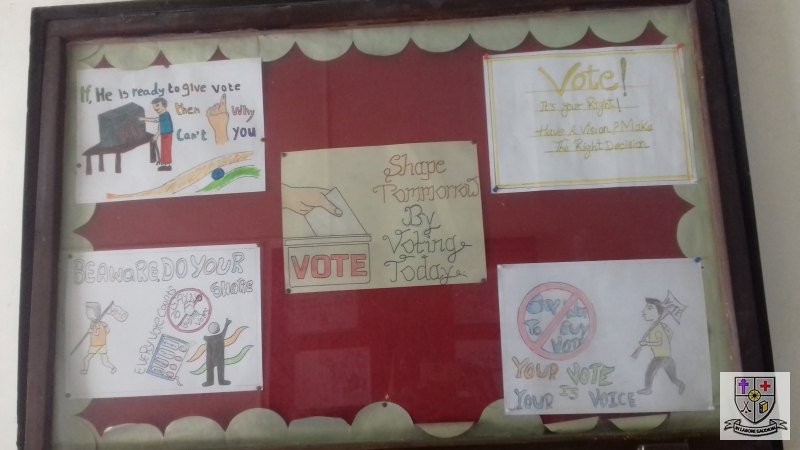 If, He is ready to give vote
then Why
Can't YOU
Vote!
It's your Right!
Have A Vision? Make
The Right Decision
Shape
Tommorrow
By
Voting
Today
VOTE
BE AWARE, DO YOUR
SHARE
EVERY Vote Counts
Say No
To Buy
VOTE
YOUR VOTE
IS
YOUR VOICE
IN LABORE GAUDIUM